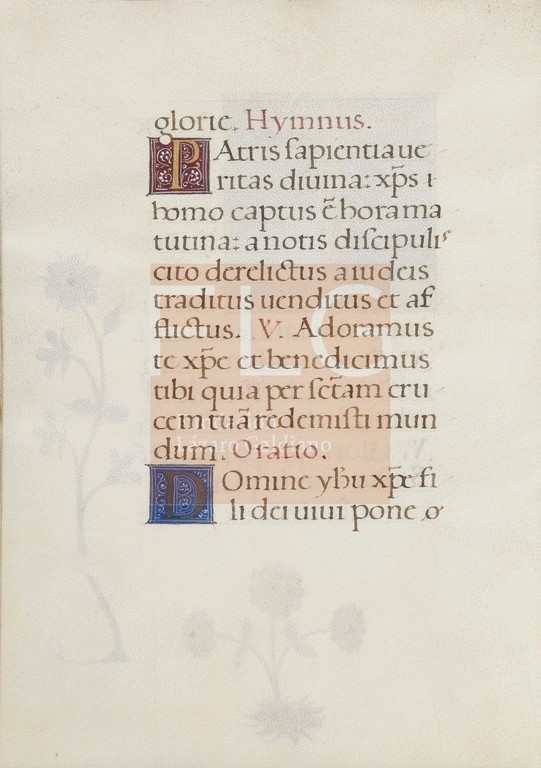 glorie. Hymnus.
PAtris sapientia ue
ritas diuina: xp̄s i
homo captus ē hora ma
tutina: a notis discipulis
cito derelictus a iudeis
traditus uenditus et af
flictus. V. Adoramus
te xp̄e et benedicimus
tibi quia per sc̄tam cru
cem tuā redemisti mun
dum. Oratio.
DOmine yhu xp̄e fi
li dei uiui pone
FLG
Lázaro Galdiano